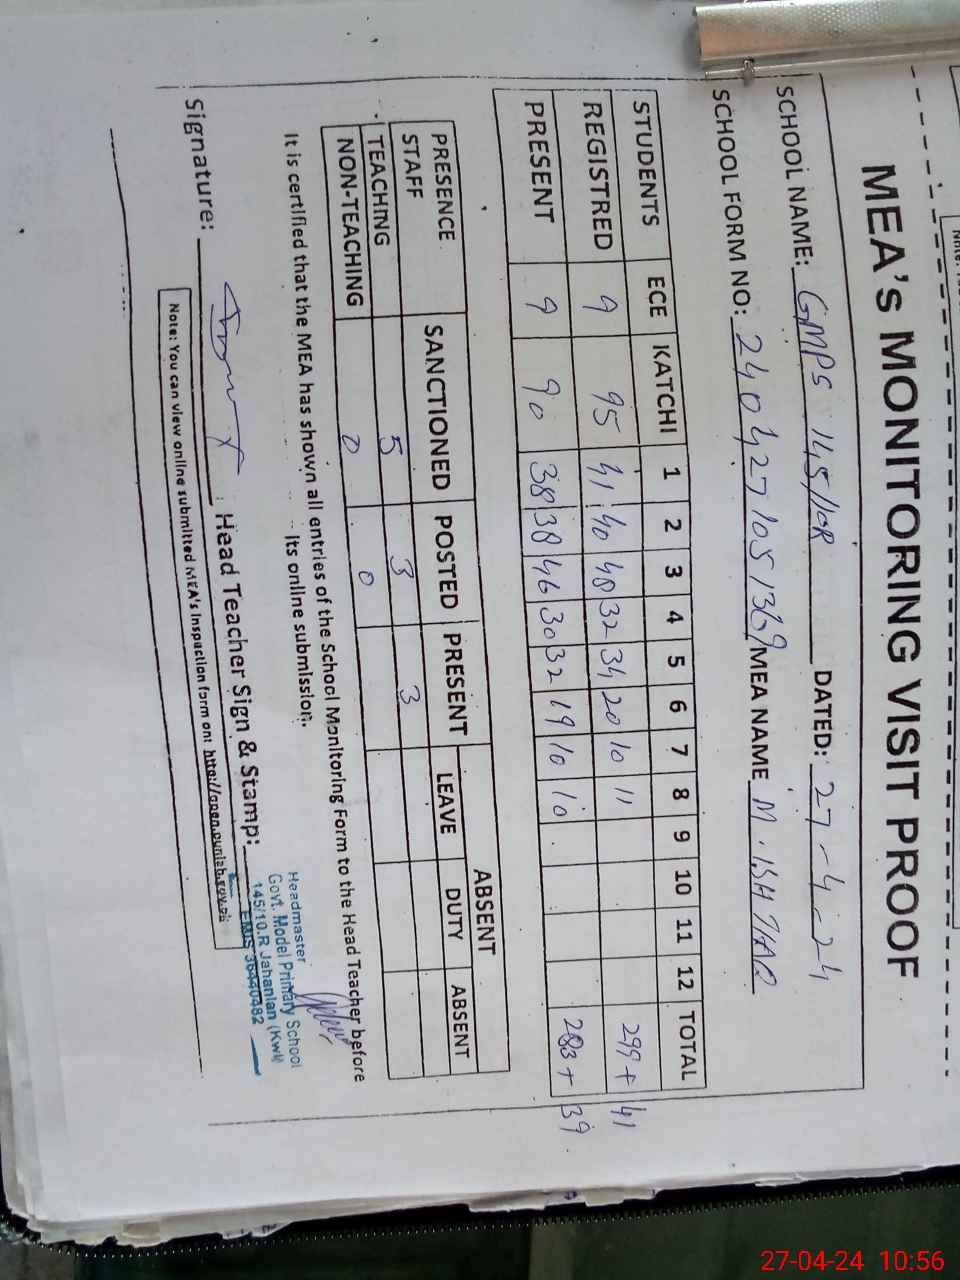 MEA's MONITORING VISIT PROOF
SCHOOL NAME: GMPS 145/10R DATED: 27-4-24
SCHOOL FORM NO: 2404271051369 MEA NAME M. ISHTIAQ
STUDENTS ECE KATCHI 1 2 3 4 5 6 7 8 9 10 11 12 TOTAL
REGISTRED 9 95 41 40 48 32 34 20 10 11 299 + 41
PRESENT 9 90 38 38 46 30 32 19 10 10 283 + 39
PRESENCE SANCTIONED POSTED PRESENT ABSENT
STAFF LEAVE DUTY ABSENT
TEACHING 5 3 3
NON-TEACHING 0 0
It is certified that the MEA has shown all entries of the School Monitoring Form to the Head Teacher before
its online submission.
Signature: Head Teacher Sign & Stamp:
Headmaster
Govt. Model Primary School
145/10.R Jahanian (Kwl)
EMIS 36440482
Note: You can view online submitted MEA's inspection form on: http://open.punjab.gov.pk
27-04-24 10:56